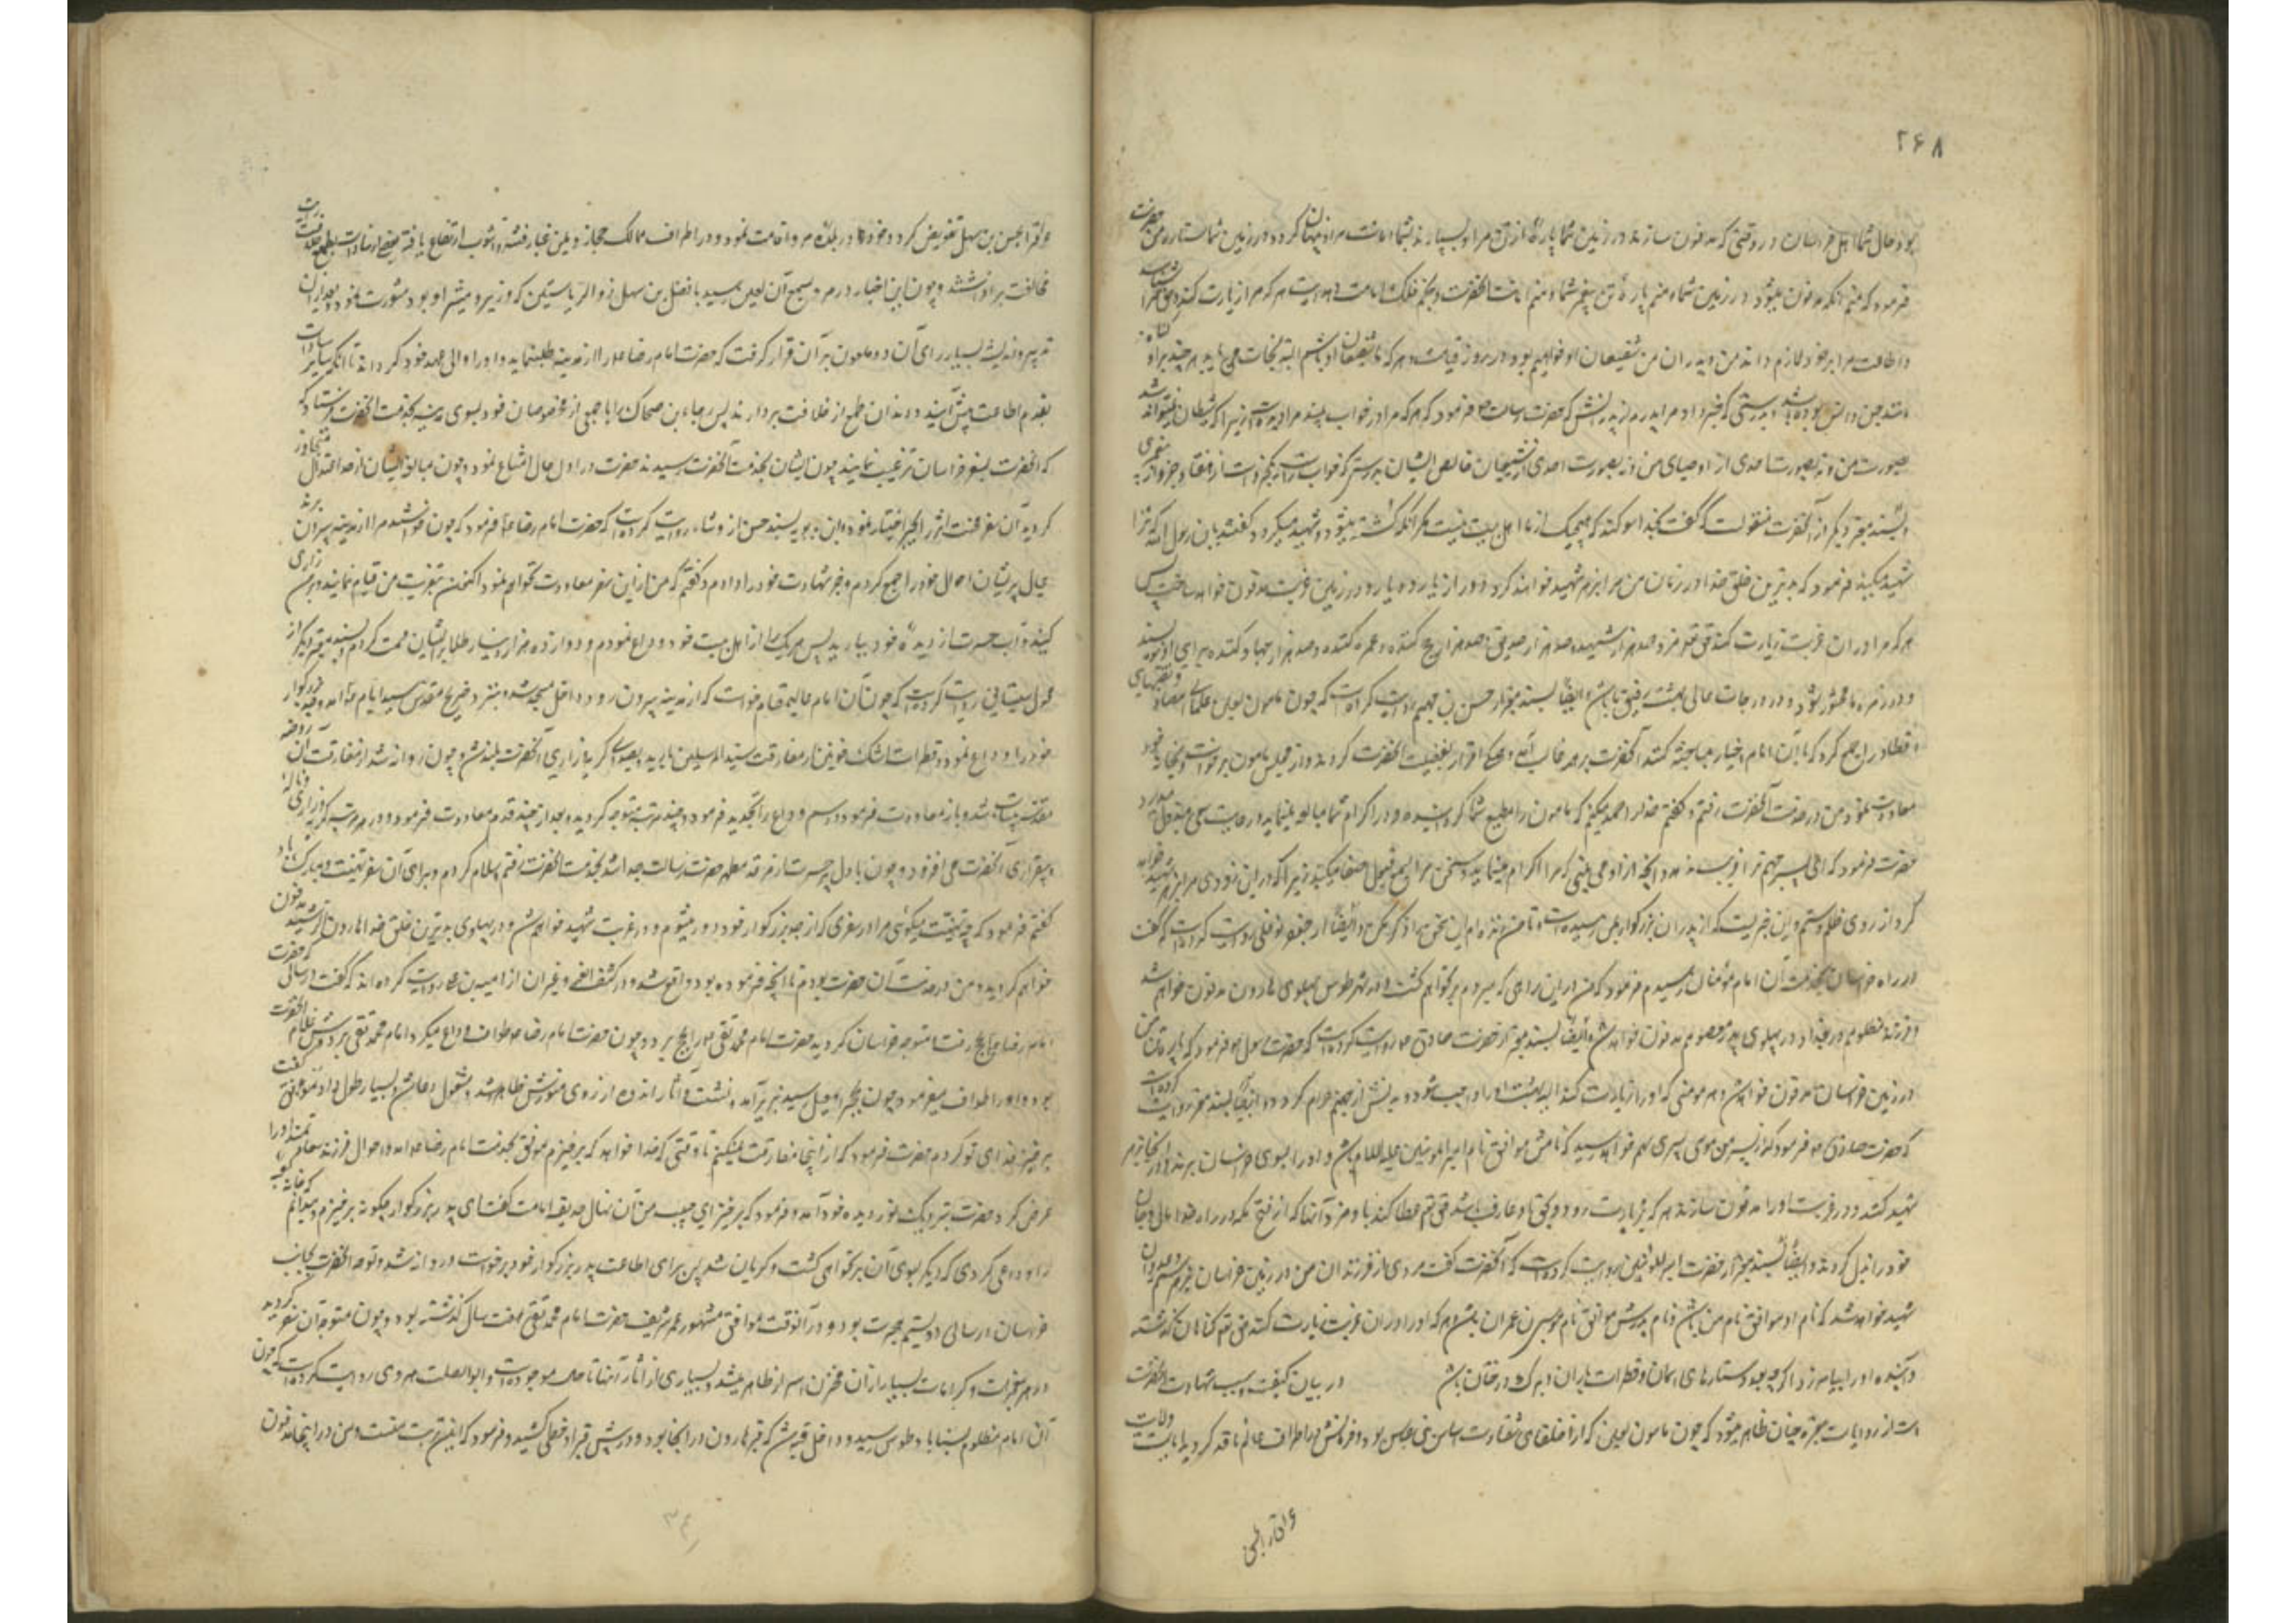 ۲۶۸
بود حال شما اهل خراسان در وقتی که مدفون سازند در زمین شما پارهٔ از تن مرا و بسپارند بشما امانت مرا و پنهان گردد در زمین شما ستاره من حضرت
فرمود که منم آنکه مدفون میشود در زمین شما و منم پارهٔ تن پیغمبر شما و منم امانت آنحضرت و نجم فلک امامت و هدایت هر که مرا زیارت کند و حق مرا شناسد
و اطاعت مرا بر خود لازم داند من و پدران من شفیعان او خواهیم بود در روز قیامت و هر که ما شفیعان او باشیم البته نجات می یابد هر چند بر او گناه
مانند جن و انس بوده باشد بدرستی که خبر داد مرا پدرم از پدرانش که حضرت رسالت ص فرمود که هر که مرا در خواب ببیند مرا دیده است زیرا که شیطان نمیتواند شد
بصورت من و نه بصورت احدی از اوصیای من و نه بصورت احدی از شیعیان خالص ایشان بدرستی که خواب راست یک جزو است از هفتاد جزو از پیغمبری
و بسند معتبر دیگر از آنحضرت منقولست که گفت بخدا سوگند که هیچیک از ما اهل بیت نیست مگر آنکه کشته میشود و شهید میگردد گفتند یابن رسول الله که ترا
شهید میکند فرمود که بدترین خلق خدا در زمان من مرا بزهر شهید خواهد کرد و دور از یار و دیار در زمین غربت مدفون خواهد ساخت پس
هر که مرا در آن غربت زیارت کند حق تعالی مزد صد هزار شهید و صد هزار صدیق و صد هزار حج کننده و عمره کننده و صد هزار جهاد کننده برای او بنویسد
و در زمره ما محشور شود و در درجات عالی بهشت رفیق ما باشد ایضاً بسند معتبر از حسن بن جهم روایت کرده است که چون مامون لعین علمای امصار و فقهای
اقطار را جمع کرد که با آن امام اخیار مباحثه کنند آنحضرت بر همه غالب آمد و همگی اقرار بفضیلت آنحضرت کردند و از مجلس مامون برخواست و بخانه خود
معاودت نمود من در خدمت آنحضرت رفتم و گفتم خدا را حمد میکنم که مامون را مطیع شما گردانیده و در اکرام شما مبالغه مینماید و رعایت سعی مبذول میدارد
حضرت فرمود که ای پسر جهم ترا فریب ندهد آنچه از او می بینی که مرا اکرام مینماید و سخن مرا بسمع قبول اصغا میکند زیرا که در این زودی مرا بزهر شهید خواهد
کرد از روی ظلم و ستم و این خبریست که از پدران بزرگوار بمن رسیده است و تا من زنده ام این سخن را ذکر مکن و ایضاً از جعفر نوفلی روایت کرده است که گفت
در راه خراسان بخدمت آن امام مؤمنان رسیدم فرمود که من از این راهی که میروم بر نخواهم گشت و در شهر طوس پهلوی هارون مدفون خواهم شد
و فرزند مظلومم در بغداد در پهلوی پدر معصومم مدفون خواهد شد و ایضاً بسند معتبر از حضرت صادق ع روایت کرده است که حضرت رسول ص فرمود که پاره تن من
در زمین خراسان مدفون خواهد شد هر مومنی که او را زیارت کند البته بهشت او را واجب شود و بدنش از جهنم حرام گردد و ایضاً بسند معتبر روایت کرده است
که حضرت صادق ع فرمود که از پسر من موسی پسری بهم خواهد رسید که نامش موافق نام امیر المومنین علیه السلام باشد و او را بسوی خراسان برند و در آنجا بزهر
شهید کنند و در غربت او را مدفون سازند هر که بزیارت رود و بحق او عارف باشد حق تعالی عطا کند باو مزد آنها که از فتح مکه در راه خدا مال و جان
خود را بذل کردند و ایضاً بسند معتبر از حضرت امیر المومنین روایت کرده است که آنحضرت گفت مردی از فرزندان من در زمین خراسان بزهر ستم و عدوان
شهید خواهد شد که نام او موافق نام من باشد و نام پدرش موافق نام موسی بن عمران باشد هر که او را در آن غربت زیارت کند حق تعالی گناهان گذشته
و آینده او را بیامرزد اگرچه بعدد ستاره های آسمان و قطرات باران و برگ درختان باشد در بیان کیفیت و سبب شهادت آنحضرت
است از روایات معتبره چنان ظاهر میشود که چون مامون لعین که از خلفای شقاوت اساس بنی عباس بود و فرمانش در اطراف عالم نافذ گردید ایالت ولایت
عراق را بحسن بن سهل تفویض کرد و خود در بلده مرو اقامت نمود و در اطراف ممالک حجاز و یمن غبار فتنه و آشوب ارتفاع یافته بعضی از سادات بطمع خلافت رایت
مخالفت برافراشتند و چون این اخبار در مرو بسمع آن لعین رسید با فضل بن سهل ذوالریاستین که وزیر و مشیر او بود مشورت نمود و بعد از آن
تدبیر و اندیشه بسیار رای آن دو ملعون بر آن قرار گرفت که حضرت امام رضا ع را از مدینه طلب نماید و او را والی عهد خود گرداند تا آنکه سایر سادات
بقدم اطاعت پیش آیند و دندان طمع از خلافت بردارند پس رجاء بن ضحاک را با جمعی از مخصوصان خود بسوی مدینه بخدمت آنحضرت فرستاد که
که آنحضرت بسفر خراسان ترغیب نمایند چون ایشان بخدمت آنحضرت رسیدند حضرت در اول حال امتناع نمود و چون مبالغه ایشان از حد اعتدال متجاوز
گردید آن سفر محنت اثر را بجبر اختیار نمود و ابن بابویه بسند حسن از وشاء روایت کرده است که حضرت امام رضا ع فرمود که چون خواستند مرا از مدینه بیرون برند
عیال پریشان احوال خود را جمع کردم و خبر شهادت خود را دادم و گفتم که من از این سفر معاودت نخواهم نمود اکنون بتعزیت من قیام نمایند و بر من زاری
کنید و آب حسرت از دیده خود ببارید پس هر یک را از اهل بیت خود وداع نمودم و دوازده هزار دینار طلا بر ایشان قسمت کردم و بسند معتبر دیگر از
محول سیستانی روایت کرده است که چون آن امام عالیمقام خواست که از مدینه بیرون رود داخل مسجد شد و بنزد ضریح مقدس سید انام ص آمد و جد بزرگوار
خود را وداع نمود و قطرات اشک خونین از مفارقت سید المرسلین بارید صدای گریه و زاری آنحضرت بلند شد و چون روانه شد از مفارقت آن روضه
مقدسه بیتاب شد و باز معاودت فرمود و رسم وداع را تجدید فرمود و چند مرتبه متوجه گردید و بعد از چند قدم معاودت فرمود و در هر مرتبه گریه و زاری و ناله
و بیقراری آنحضرت می افزود و چون با دل پر حسرت از مرقد مطهر حضرت رسالت جدا شد بخدمت آنحضرت رفتم سلام کردم و برای آن سفر تهنیت و مبارک باد
گفتم فرمود که چه تهنیت میگوئی مرا در سفری که از جد بزرگوار خود دور میشوم و در غربت شهید خواهم شد و در پهلوی بدترین خلق خدا هارون الرشید مدفون
خواهم گردید و من در خدمت آن حضرت بودم تا آنچه فرموده بود واقع شد و در کشف الغمه و غیر آن از امیه بن علی روایت کرده اند که گفت در سالی که حضرت
امام رضا ع بحج رفت و متوجه خراسان گردید حضرت امام محمد تقی را بحج برد و چون حضرت امام رضا ع طواف وداع میکرد امام محمد تقی بر دوش غلام آنحضرت
بود و او را طواف میفرمود چون بحجر اسمعیل رسید بزیر آمد و نشست و آثار اندوه از روی منورش ظاهر شد و مشغول دعا شد و بسیار طول داد موفق گفت
برخیز فدای تو گردم حضرت فرمود که از اینجا مفارقت نمیکنم تا وقتی که خدا خواهد که برخیزم موفق بخدمت امام رضا ع آمد و احوال فرزند سعادتمند او را
عرض کرد حضرت بنزدیک نور دیده خود آمد و فرمود که برخیز ای حبیب من آن نهال حدیقه امامت گفت ای پدر بزرگوار چگونه برخیزم و میدانم که خانه کعبه
را وداعی کردی که دیگر بسوی آن برنخواهی گشت و گریان شد پس برای اطاعت پدر بزرگوار خود برخواست و روانه شد و توجه آنحضرت بجانب
خراسان در سال دویستم هجرت بود و در آنوقت موافق مشهور عمر شریف حضرت امام محمد تقی هفت سال گذشته بود و چون متوجه آن سفر گردید
در هر معجزات و کرامات بسیار از آن مخزن اسرار ظاهر میشد و بسیاری از آثار آنها تا حال موجود است و ابوالصلت هروی روایت کرده است که چون
آن امام مظلوم بسناباد طوس رسید و داخل قبه شد که قبر هارون در آنجا بود و در پیش قبر او خطی کشید و فرمود که این تربت منست و من در اینجا مدفون